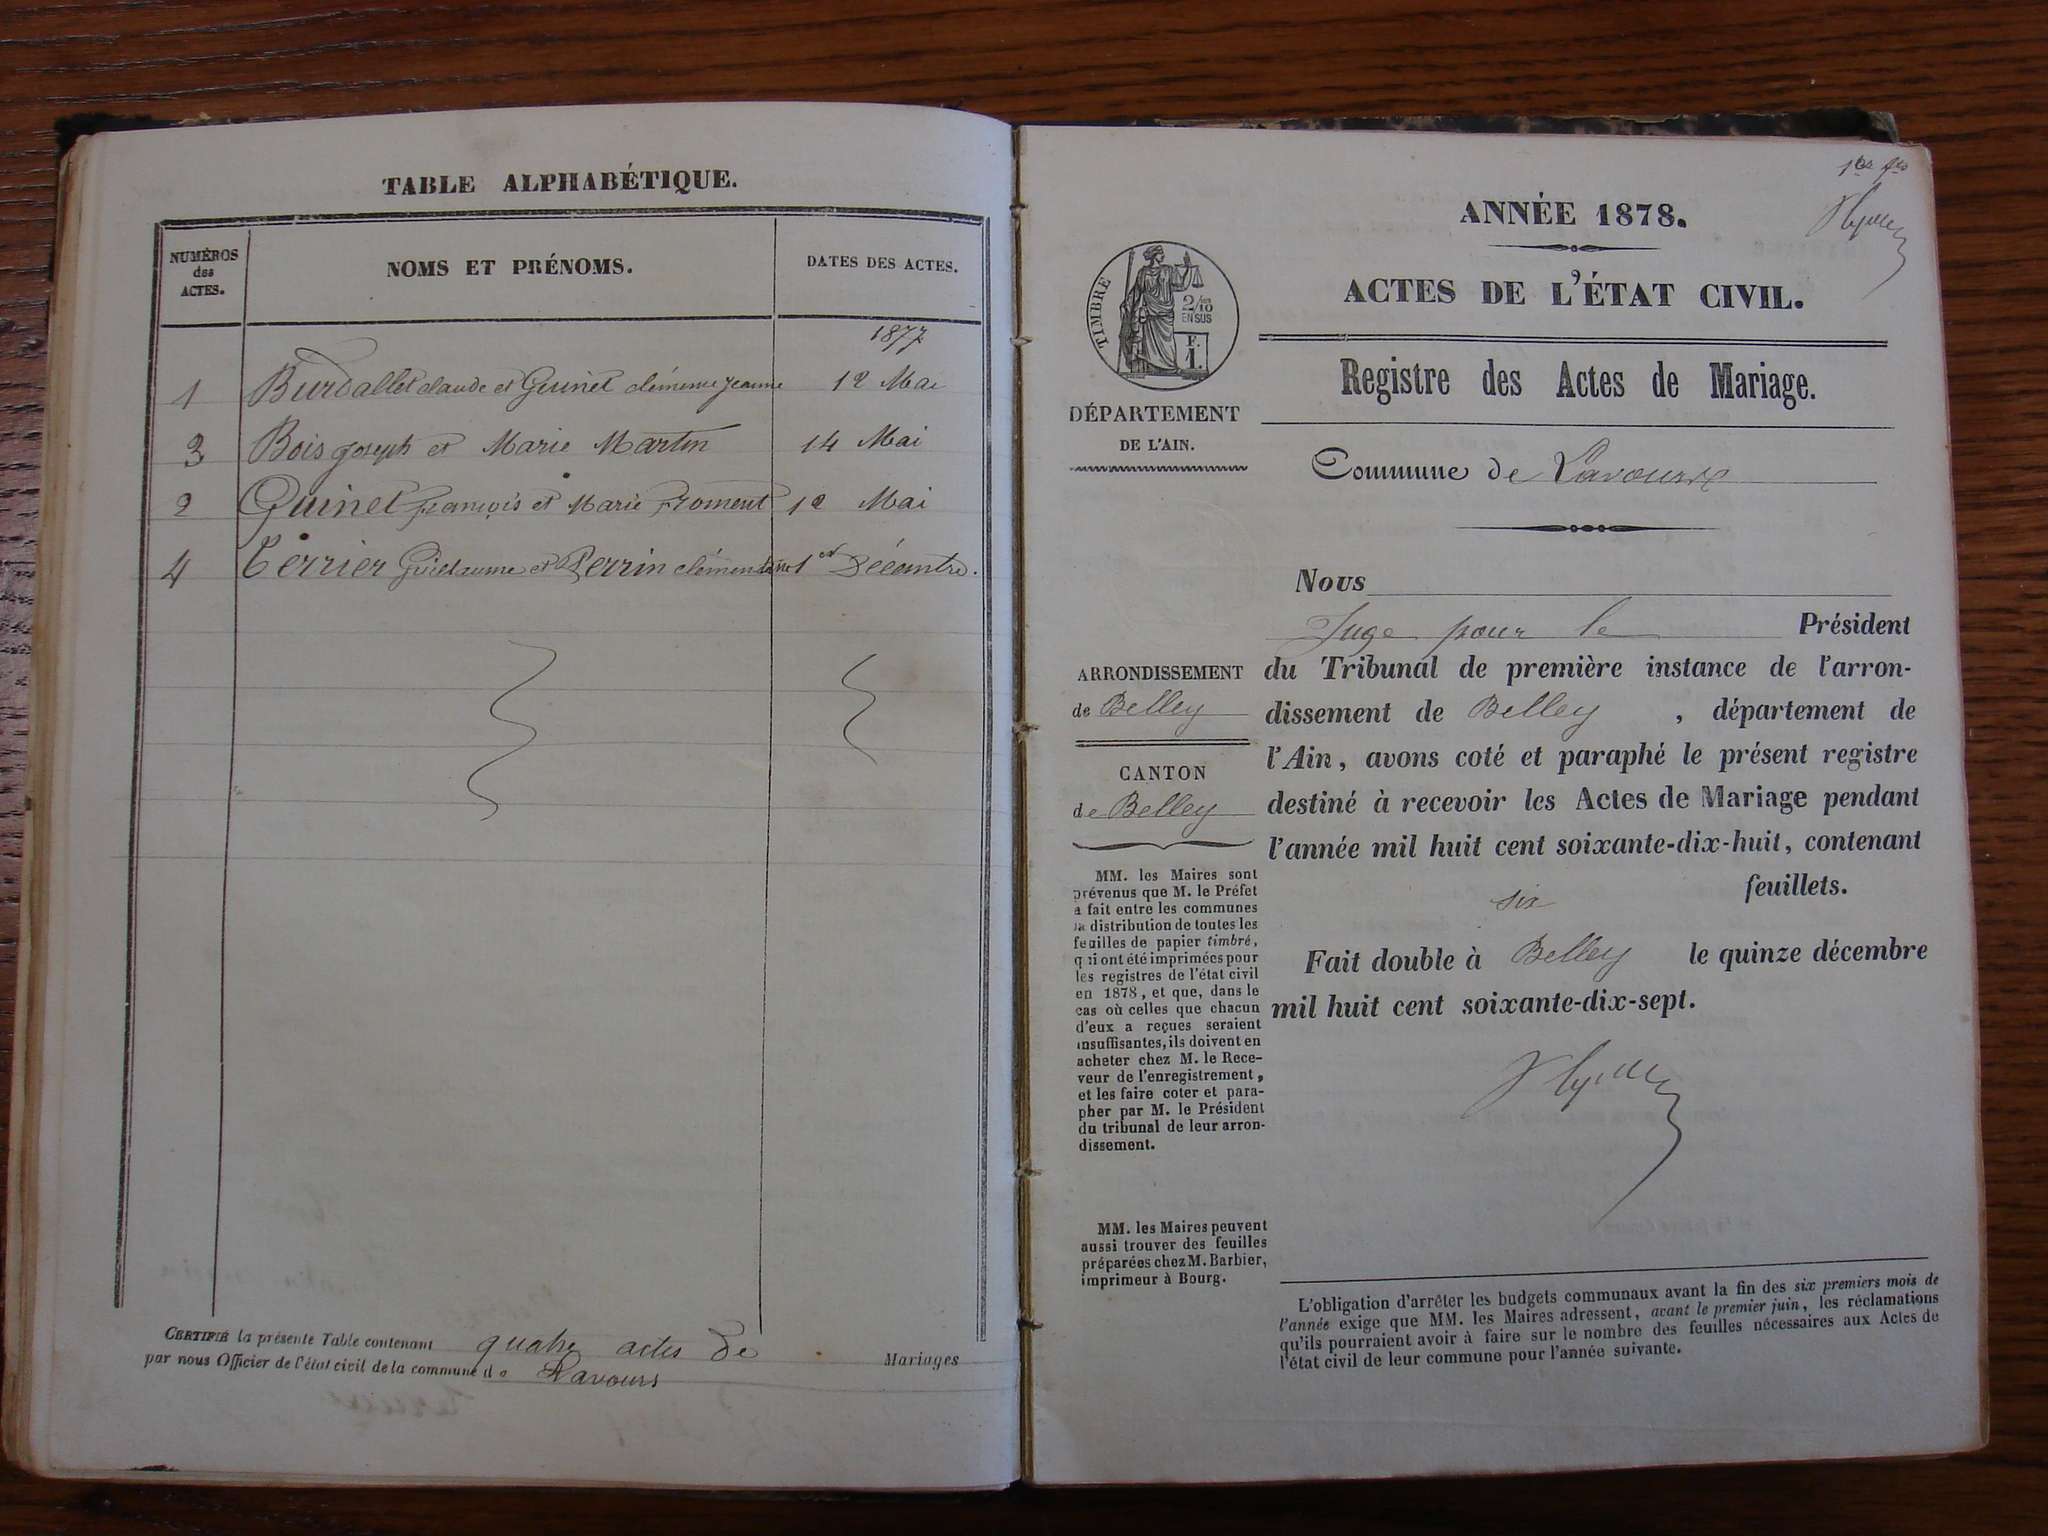 TABLE ALPHABÉTIQUE.
NUMÉROS
des
ACTES.
NOMS ET PRÉNOMS.
DATES DES ACTES.
1877
1 Burdallet claude et Guinet clémence jeanne 12 Mai
3 Bois joseph et Marie Martin 14 Mai
2 Guinet françois et Marie Froment 12 Mai
4 Terrier Guillaume et Perrin clémentine 1er Décembre.
CERTIFIÉ la présente Table contenant quatre actes de Mariages
par nous Officier de l'état civil de la commune de Lavours
ANNÉE 1878.
ACTES DE L'ÉTAT CIVIL.
TIMBRE
2/10
EN SUS
F.
1.
Registre des Actes de Mariage.
DÉPARTEMENT
DE L'AIN.
Commune de Lavours
Nous
Juge pour le Président
du Tribunal de première instance de l'arron-
dissement de Belley, département de
l'Ain, avons coté et paraphé le présent registre
destiné à recevoir les Actes de Mariage pendant
l'année mil huit cent soixante-dix-huit, contenant
six feuillets.
Fait double à Belley le quinze décembre
mil huit cent soixante-dix-sept.
ARRONDISSEMENT
de Belley
CANTON
de Belley
MM. les Maires sont
prévenus que M. le Préfet
a fait entre les communes
la distribution de toutes les
feuilles de papier timbré,
qui ont été imprimées pour
les registres de l'état civil
en 1878, et que, dans le
cas où celles que chacun
d'eux a reçues seraient
insuffisantes, ils doivent en
acheter chez M. le Rece-
veur de l'enregistrement,
et les faire coter et para-
pher par M. le Président
du tribunal de leur arron-
dissement.
MM. les Maires peuvent
aussi trouver des feuilles
préparées chez M. Barbier,
imprimeur à Bourg.
L'obligation d'arrêter les budgets communaux avant la fin des six premiers mois de
l'année exige que MM. les Maires adressent, avant le premier juin, les réclamations
qu'ils pourraient avoir à faire sur le nombre des feuilles nécessaires aux Actes de
l'état civil de leur commune pour l'année suivante.